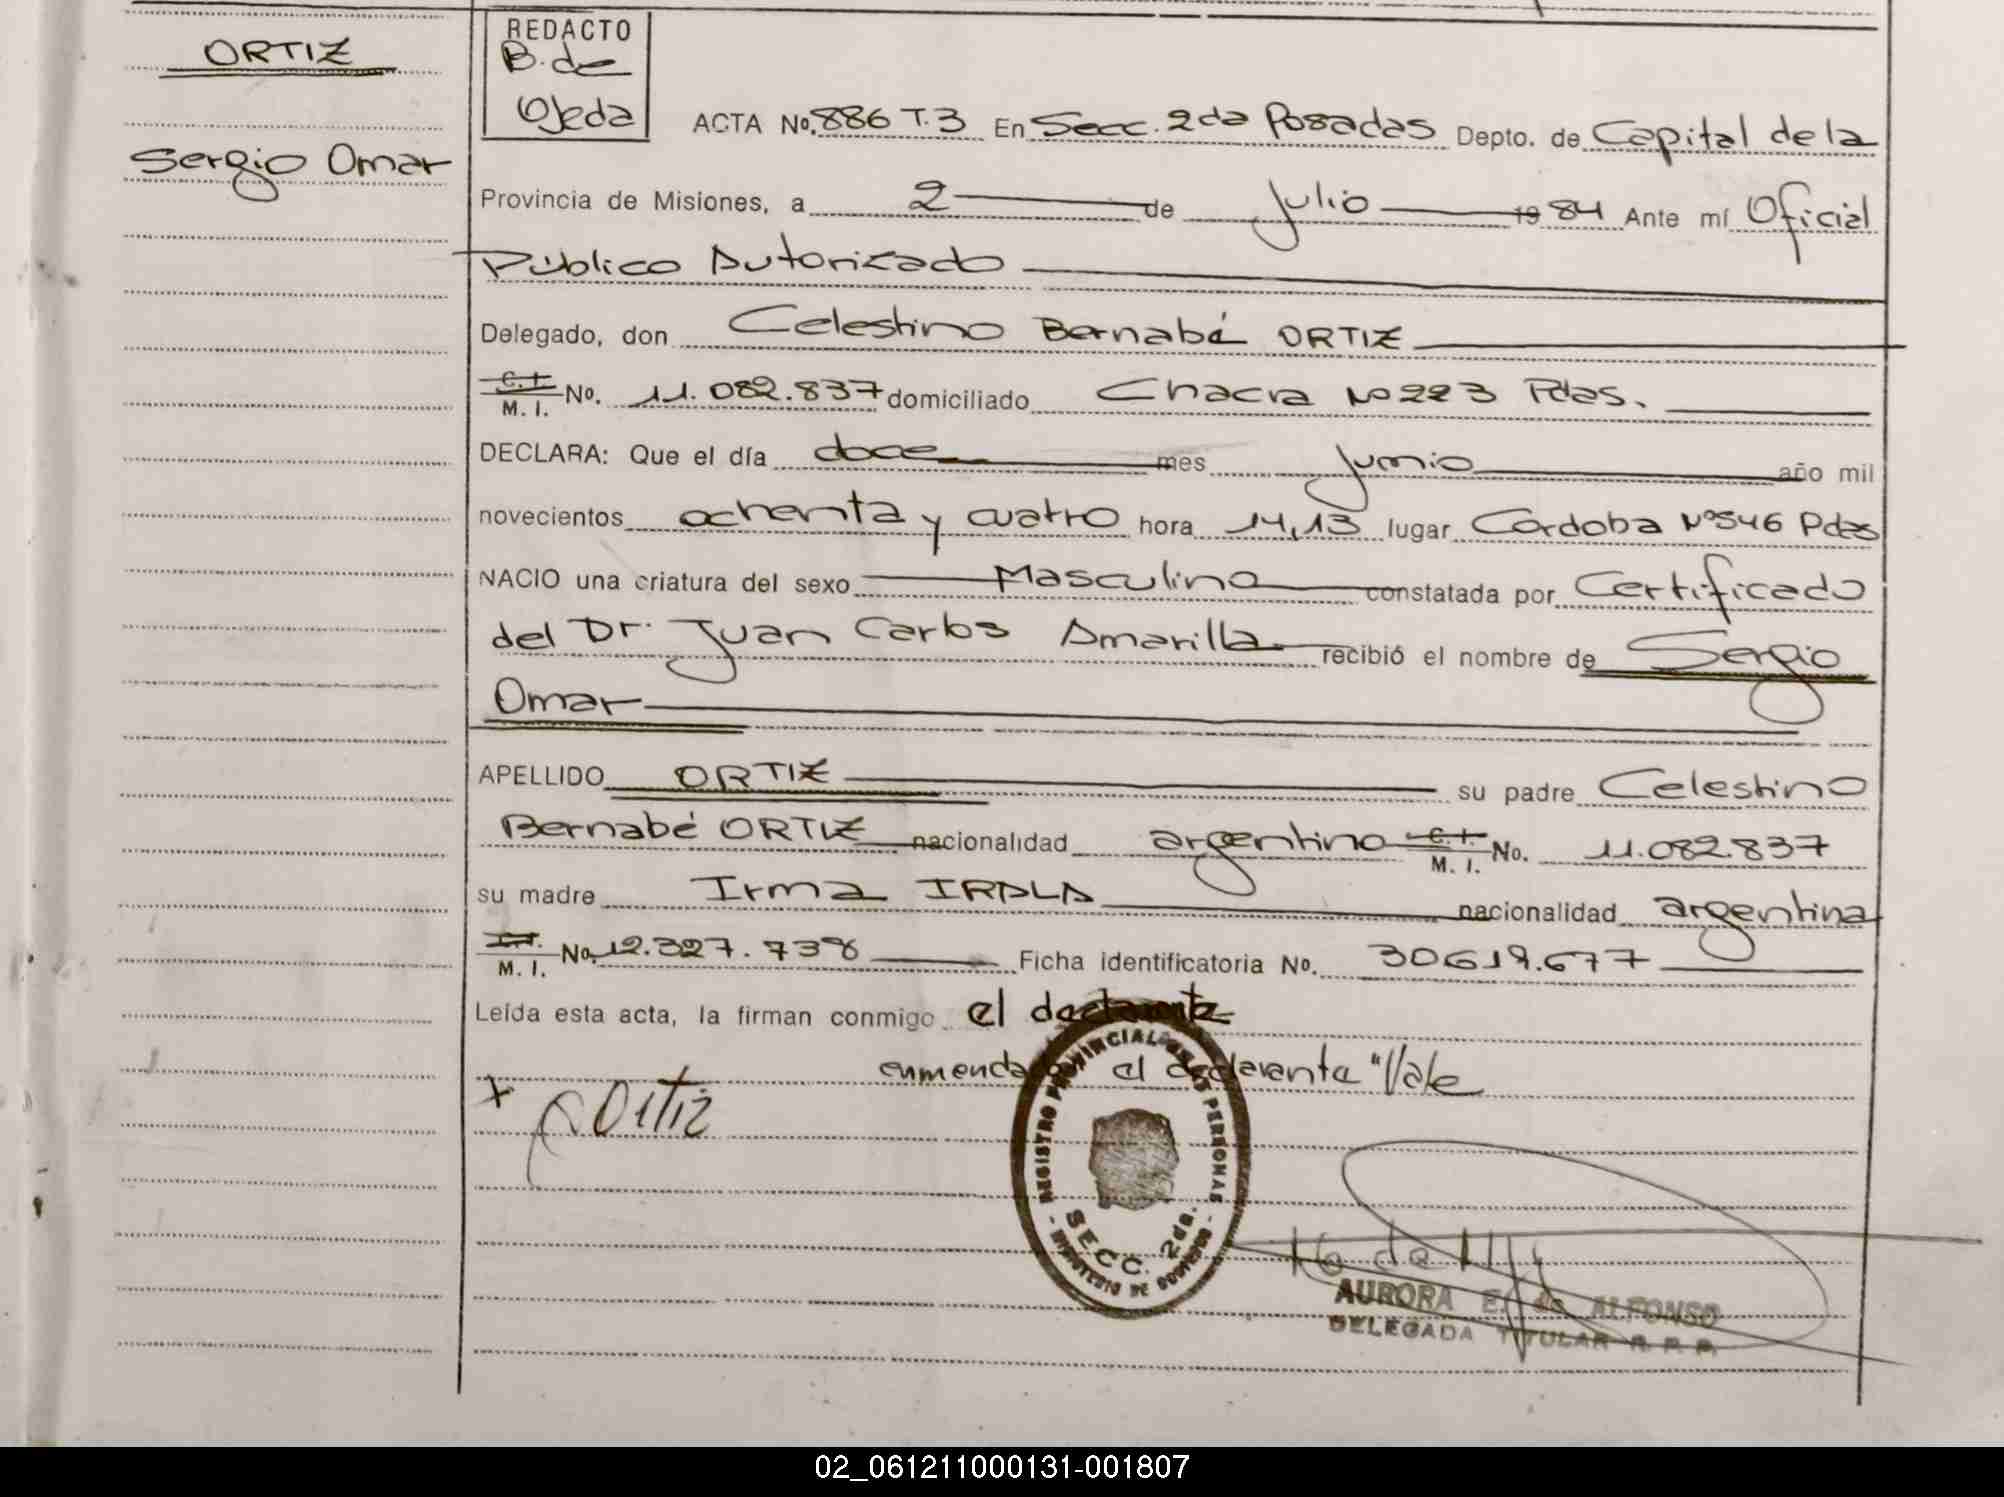 ORTIZ
Sergio Omar
REDACTO
B. de
Ojeda
ACTA No. 886 T. 3 En Secc. 2da Posadas Depto. de Capital de la
Provincia de Misiones, a 2 de Julio 1984 Ante mí Oficial
Público Autorizado
Delegado, don Celestino Bernabé ORTIZ
C. I. M. I. No. 11.082.837 domiciliado Chacra Nº 223 Pdas.
DECLARA: Que el día doce mes junio año mil
novecientos ochenta y cuatro hora 14,13 lugar Córdoba Nº 546 Pdas
NACIO una criatura del sexo Masculino constatada por Certificado
del Dr. Juan Carlos Amarilla recibió el nombre de Sergio
Omar
APELLIDO ORTIZ su padre Celestino
Bernabé ORTIZ nacionalidad argentino C. I. M. I. No. 11.082.837
su madre Irma IRALA nacionalidad argentina
M. I. No. 12.327.738 Ficha identificatoria No. 30619.677
Leída esta acta, la firman conmigo el declarante
enmendado el declarante "Vale
x Ortiz
REGISTRO PROVINCIAL DE LAS PERSONAS
SECC. 2da.
- MINISTERIO DE GOBIERNO -
AURORA E. de ALFONSO
DELEGADA TITULAR R. P. P.
02_061211000131-001807